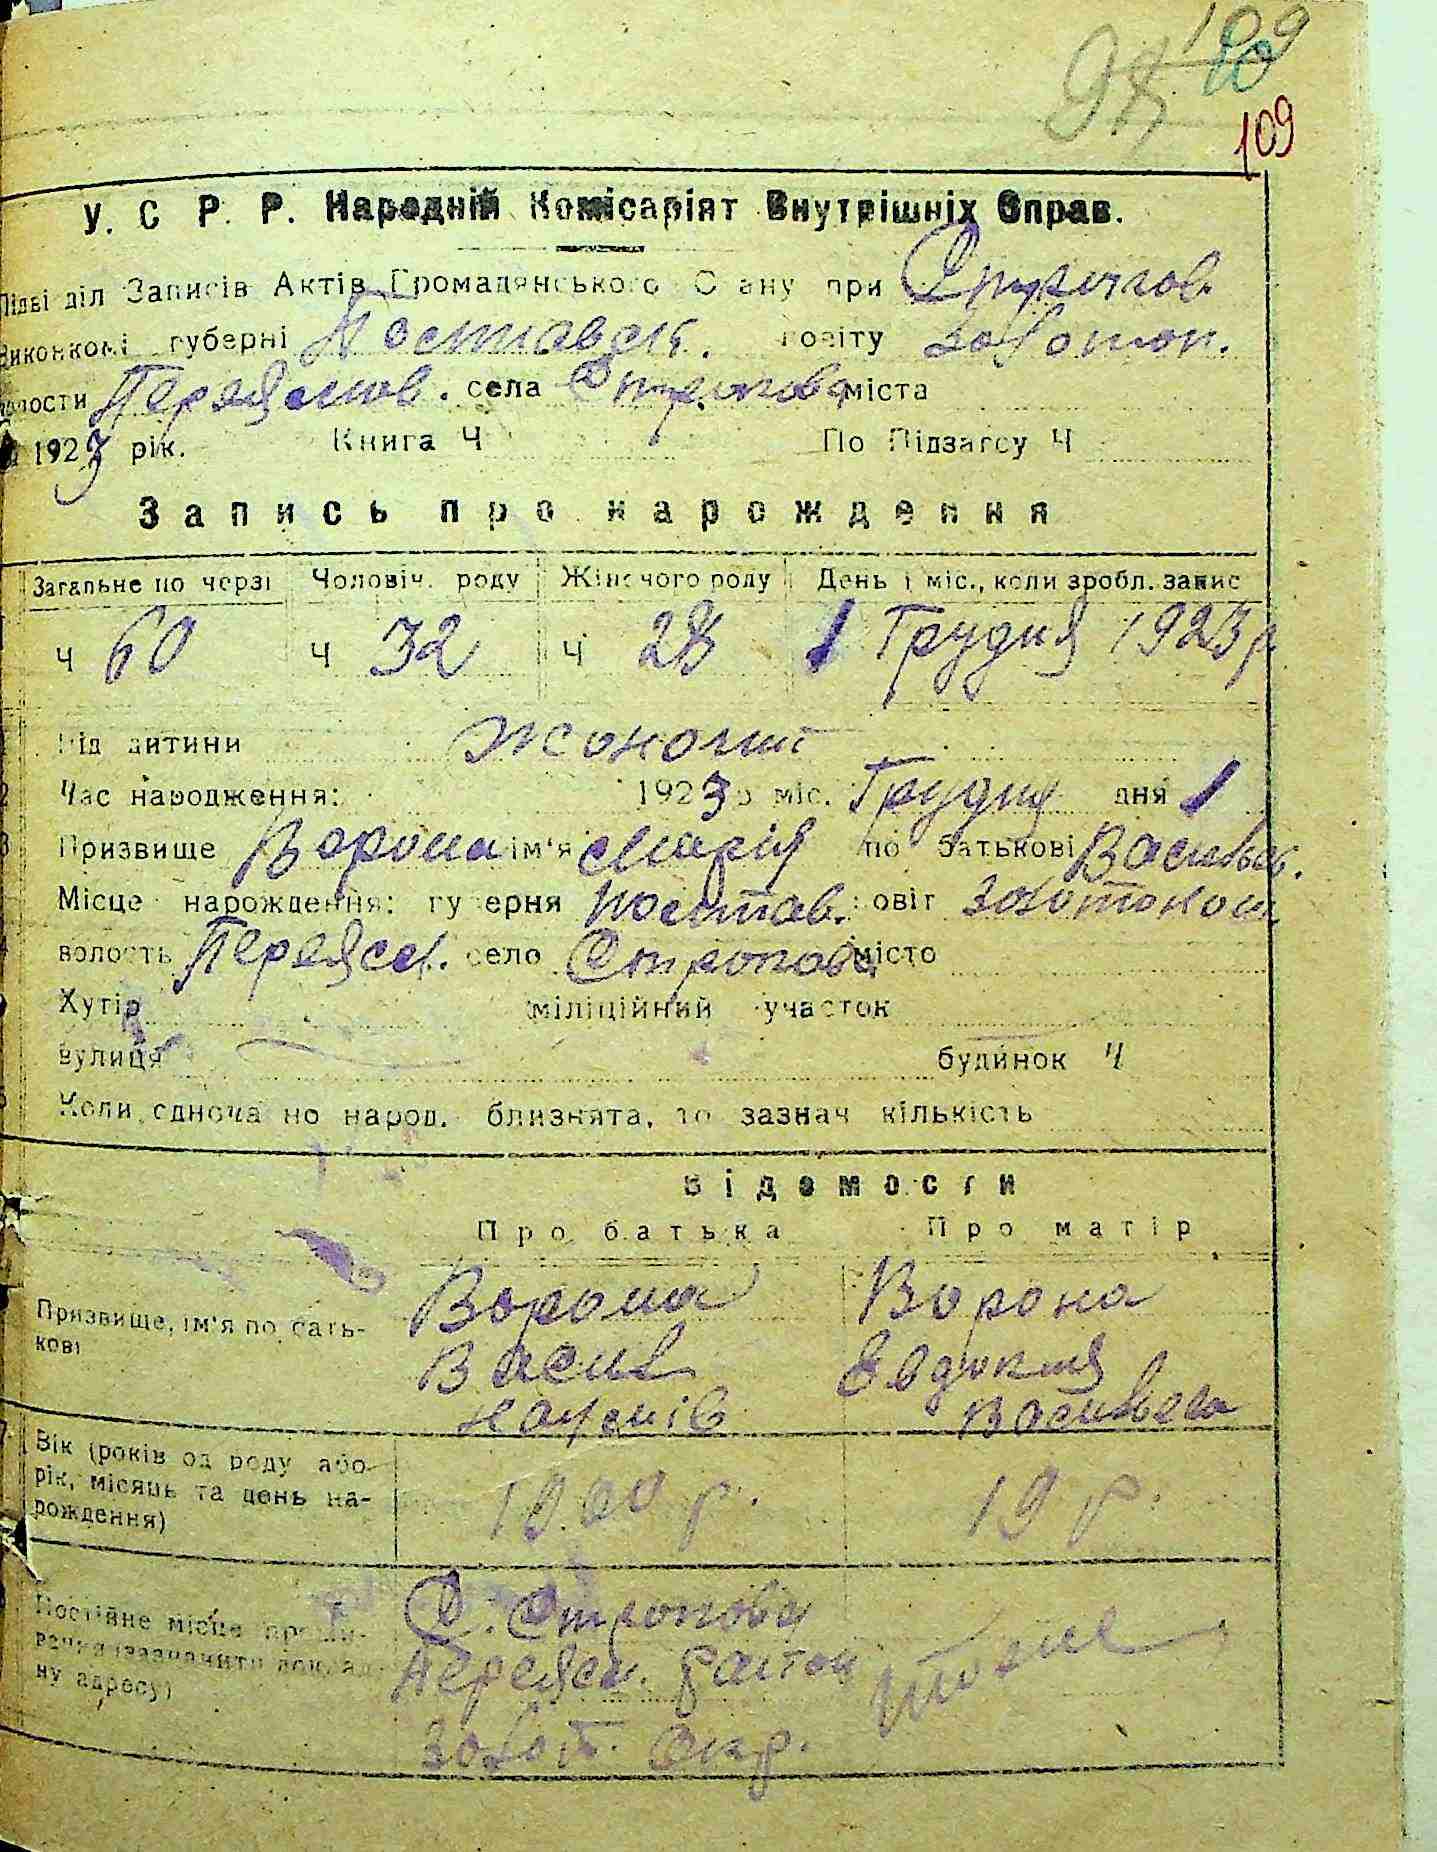 109
94 80
109
У. С. Р. Р. Народній Комісаріят Внутрішніх Справ.
Підвідділ Записів Актів Громадянського Стану при
Виконкомі губерні Полтавск. повіту Золотон.
волости Переяслов. села Строкова міста
За 1923 рік. Книга Ч По Підзагсу Ч
Запись про нарождення
Загальне по черзі Чоловіч. роду Жіночого роду День і міс., коли зробл. запис
Ч 60 Ч 32 Ч 28 1 Грудня 1923 р
1 Рід дитини Жоночий
2 Час народження: 1923 р міс. Грудня дня 1
3 Призвище Ворона ім'я Марія по батькові Васильев.
Місце нарождення: губерня Полтав. повіт Золотонош
4 волость Переясл. село Строкова місто
Хутір міліційний участок
вулиця будинок Ч
Коли одночасно народ. близнята, то зазнач кількість
Відомости
Про батька Про матір
Призвище, ім'я по бать- Ворона Ворона
кові Васил Евдокия
Васильева
7 Вік (років од роду або
рік, місяць та день на- 1900 р. 19 р.
рождення)
Постійне місце прожи- С. Строкова
вання (зазначити доклад- Переясл. район
ну адресу) Золот. Окр.